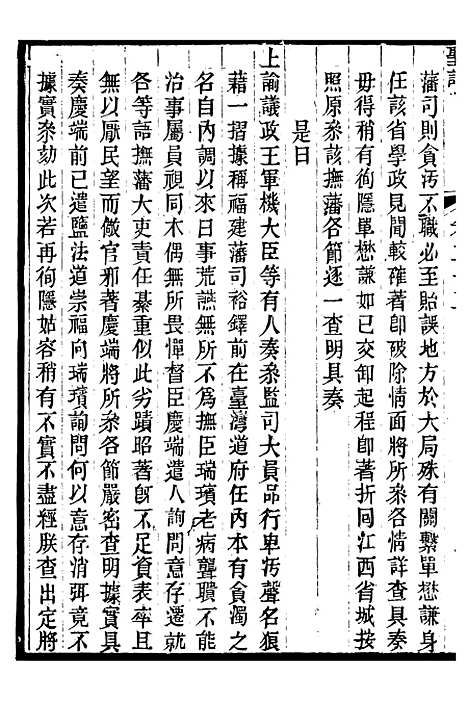 聖訓
藩司則貪汚不職必至貽誤地方於大局殊有關繫單懋謙身
任該省學政見聞較確著卽破除情面將所叅各情詳查具奏
毋得稍有徇隱單懋謙如已交卸起程卽著折回江西省城按
照原叅該撫藩各節逐一查明具奏
是日
上諭議政王軍機大臣等有人奏叅監司大員品行卑汚聲名狼
藉一摺據稱福建藩司裕鐸前在臺灣道府任內本有貪濁之
名自內調以來日事荒讌無所不為撫臣瑞璸老病聾聵不
治事屬員視同木偶無所畏憚督臣慶端遣人詢問意存遷就
各等語撫藩大吏責任綦重似此劣蹟昭著旣不足資表率且
無以厭民望而儆官邪著慶端將所叅各節嚴密查明據實具
奏慶端前已遣鹽法道崇福向瑞璸詢問何以意存消弭竟不
據實叅劾此次若再徇隱姑容稍有不實不盡經朕查出定將